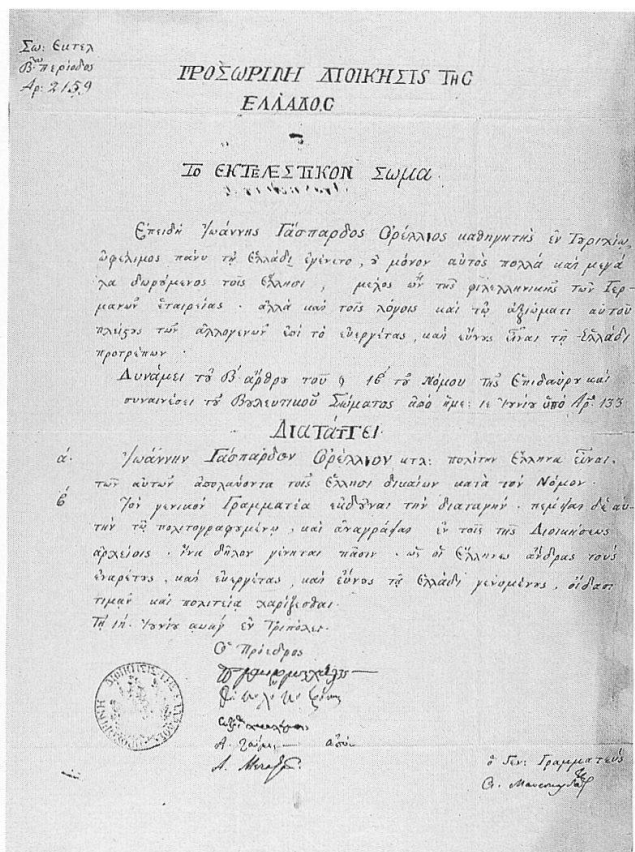 Σω: Εκτελ
Β.α περίοδος
Αρ: 2159
ΠΡΟΣΩΡΙΝΗ ΔΙΟΙΚΗΣΙΣ ΤΗC
ΕΛΛΑΔΟC
Το ΕΚΤΕΛΕΣΤΙΚΟΝ ΣΩΜΑ.
Επειδή Ἰωάννης Γάσπαρδος Ὀρέλλιος καθηγητής ἐν Τουριχίῳ,
ὠφέλιμος πάνυ τῇ Ἑλλάδι ἐγένετο, ȣ μόνον αὐτὸς πολλὰ καὶ μεγά
λα δωρούμενος τοῖς Ἕλλησι, μέλος ὢν τῆς φιλελληνικῆς τῶν Γερ
μανῶν ἑταιρείας· ἀλλὰ καὶ τοῖς λόγοις καὶ τῷ ἀξιώματι αὐτοῦ
πλείȣς τῶν ἀλλογενῶν ἐπὶ τὸ εὐεργέτας, καὶ εὔνȣς εἶναι τῇ Ἑλλάδι
προτρέπων·
Δυνάμει τοῦ Β' ἄρθρου τοῦ § 16' τοῦ Νόμου τῆς Ἐπιδαύρȣ καὶ
συναινέσει τοῦ Βουλευτικοῦ Σώματος ἀπὸ ἡμε: 1ε Ἰȣνίȣ ὑπὸ Ἀρ. 133
ΔΙΑΤΑΤΤΕΙ
α. Ἰωάννην Γάσπαρδον Ὀρέλλιον κτλ: πολίτην Ἕλληνα εἶναι,
τῶν αὐτῶν ἀπολαύοντα τοῖς Ἕλλησι δικαίων κατὰ τὸν Νόμον.
β Τὸν γενικὸν Γραμματέα ἐκδοῦναι τὴν διαταγήν· πέμψας δὲ αὐ
τὴν τῷ πολιτογραφȣμένῳ, καὶ ἀναγράψας ἐν τοῖς τῆς Διοικήσεως
ἀρχείοις. ἵνα δῆλον γίνηται πᾶσιν· ὡς οἱ Ἕλληνες ἄνδρας τοὺς
ἐναρέτȣς, καὶ εὐεργέτας, καὶ εὔνȣς τῇ Ἑλλάδι γενομένȣς, οἴδασι
τιμᾶν καὶ πολιτεία χαρίζεσθαι.
Τῇ ιη. Ἰȣνίȣ αωκγ ἐν Τριπόλει
Ὁ Πρόεδρος
ὁ Γεν: Γραμματεύς